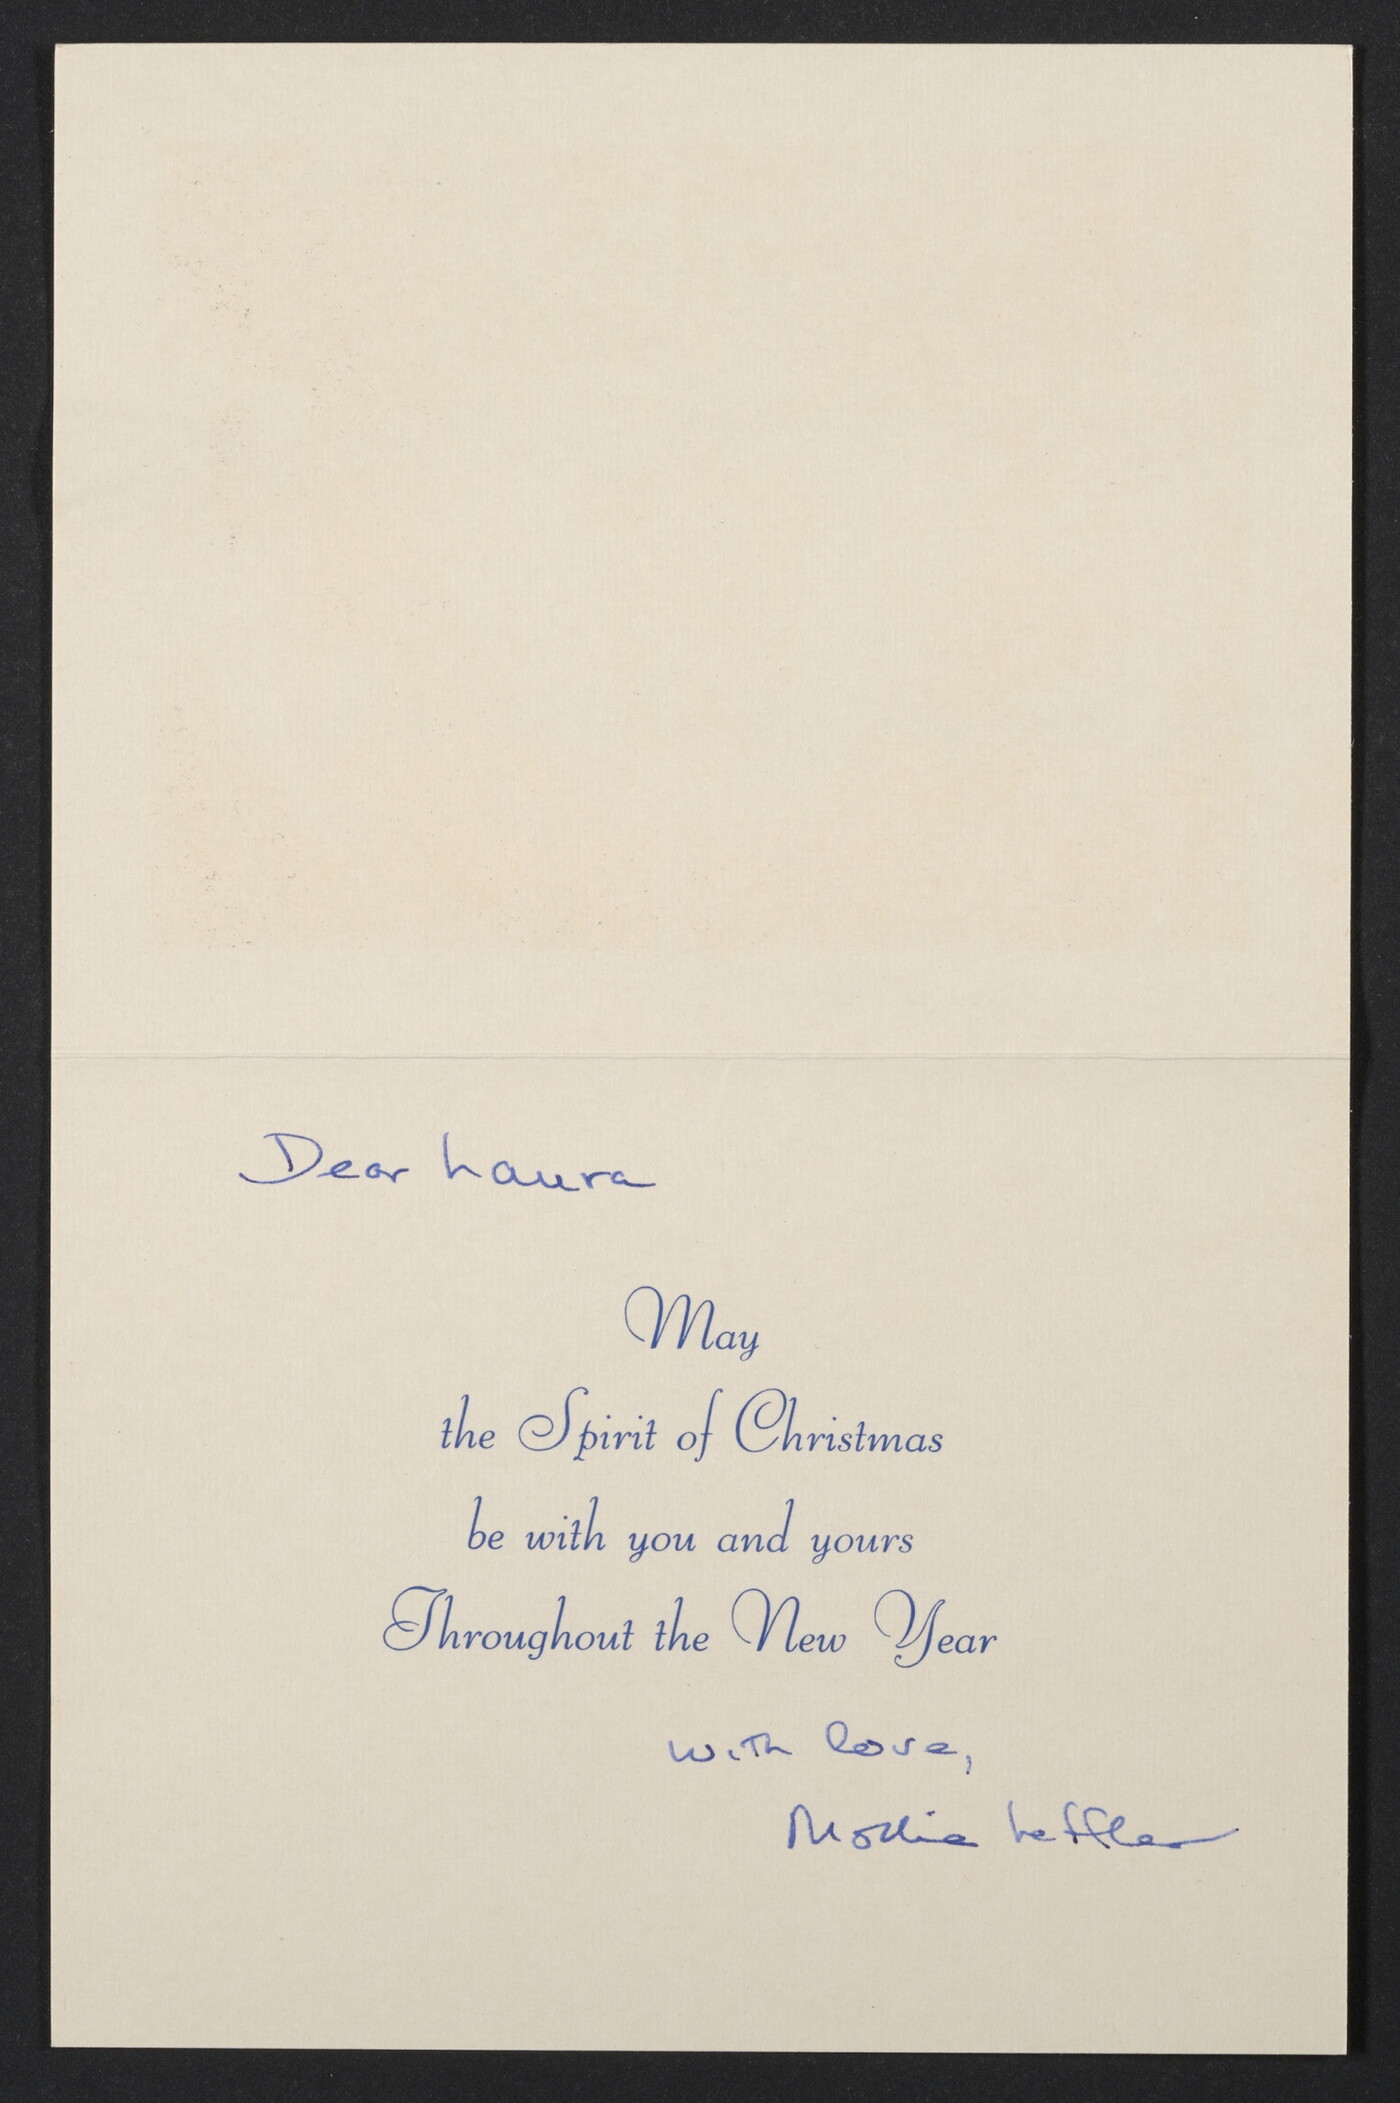 Dear Laura
May
the Spirit of Christmas
be with you and yours
Throughout the New Year
with love,
Mollie Leffler